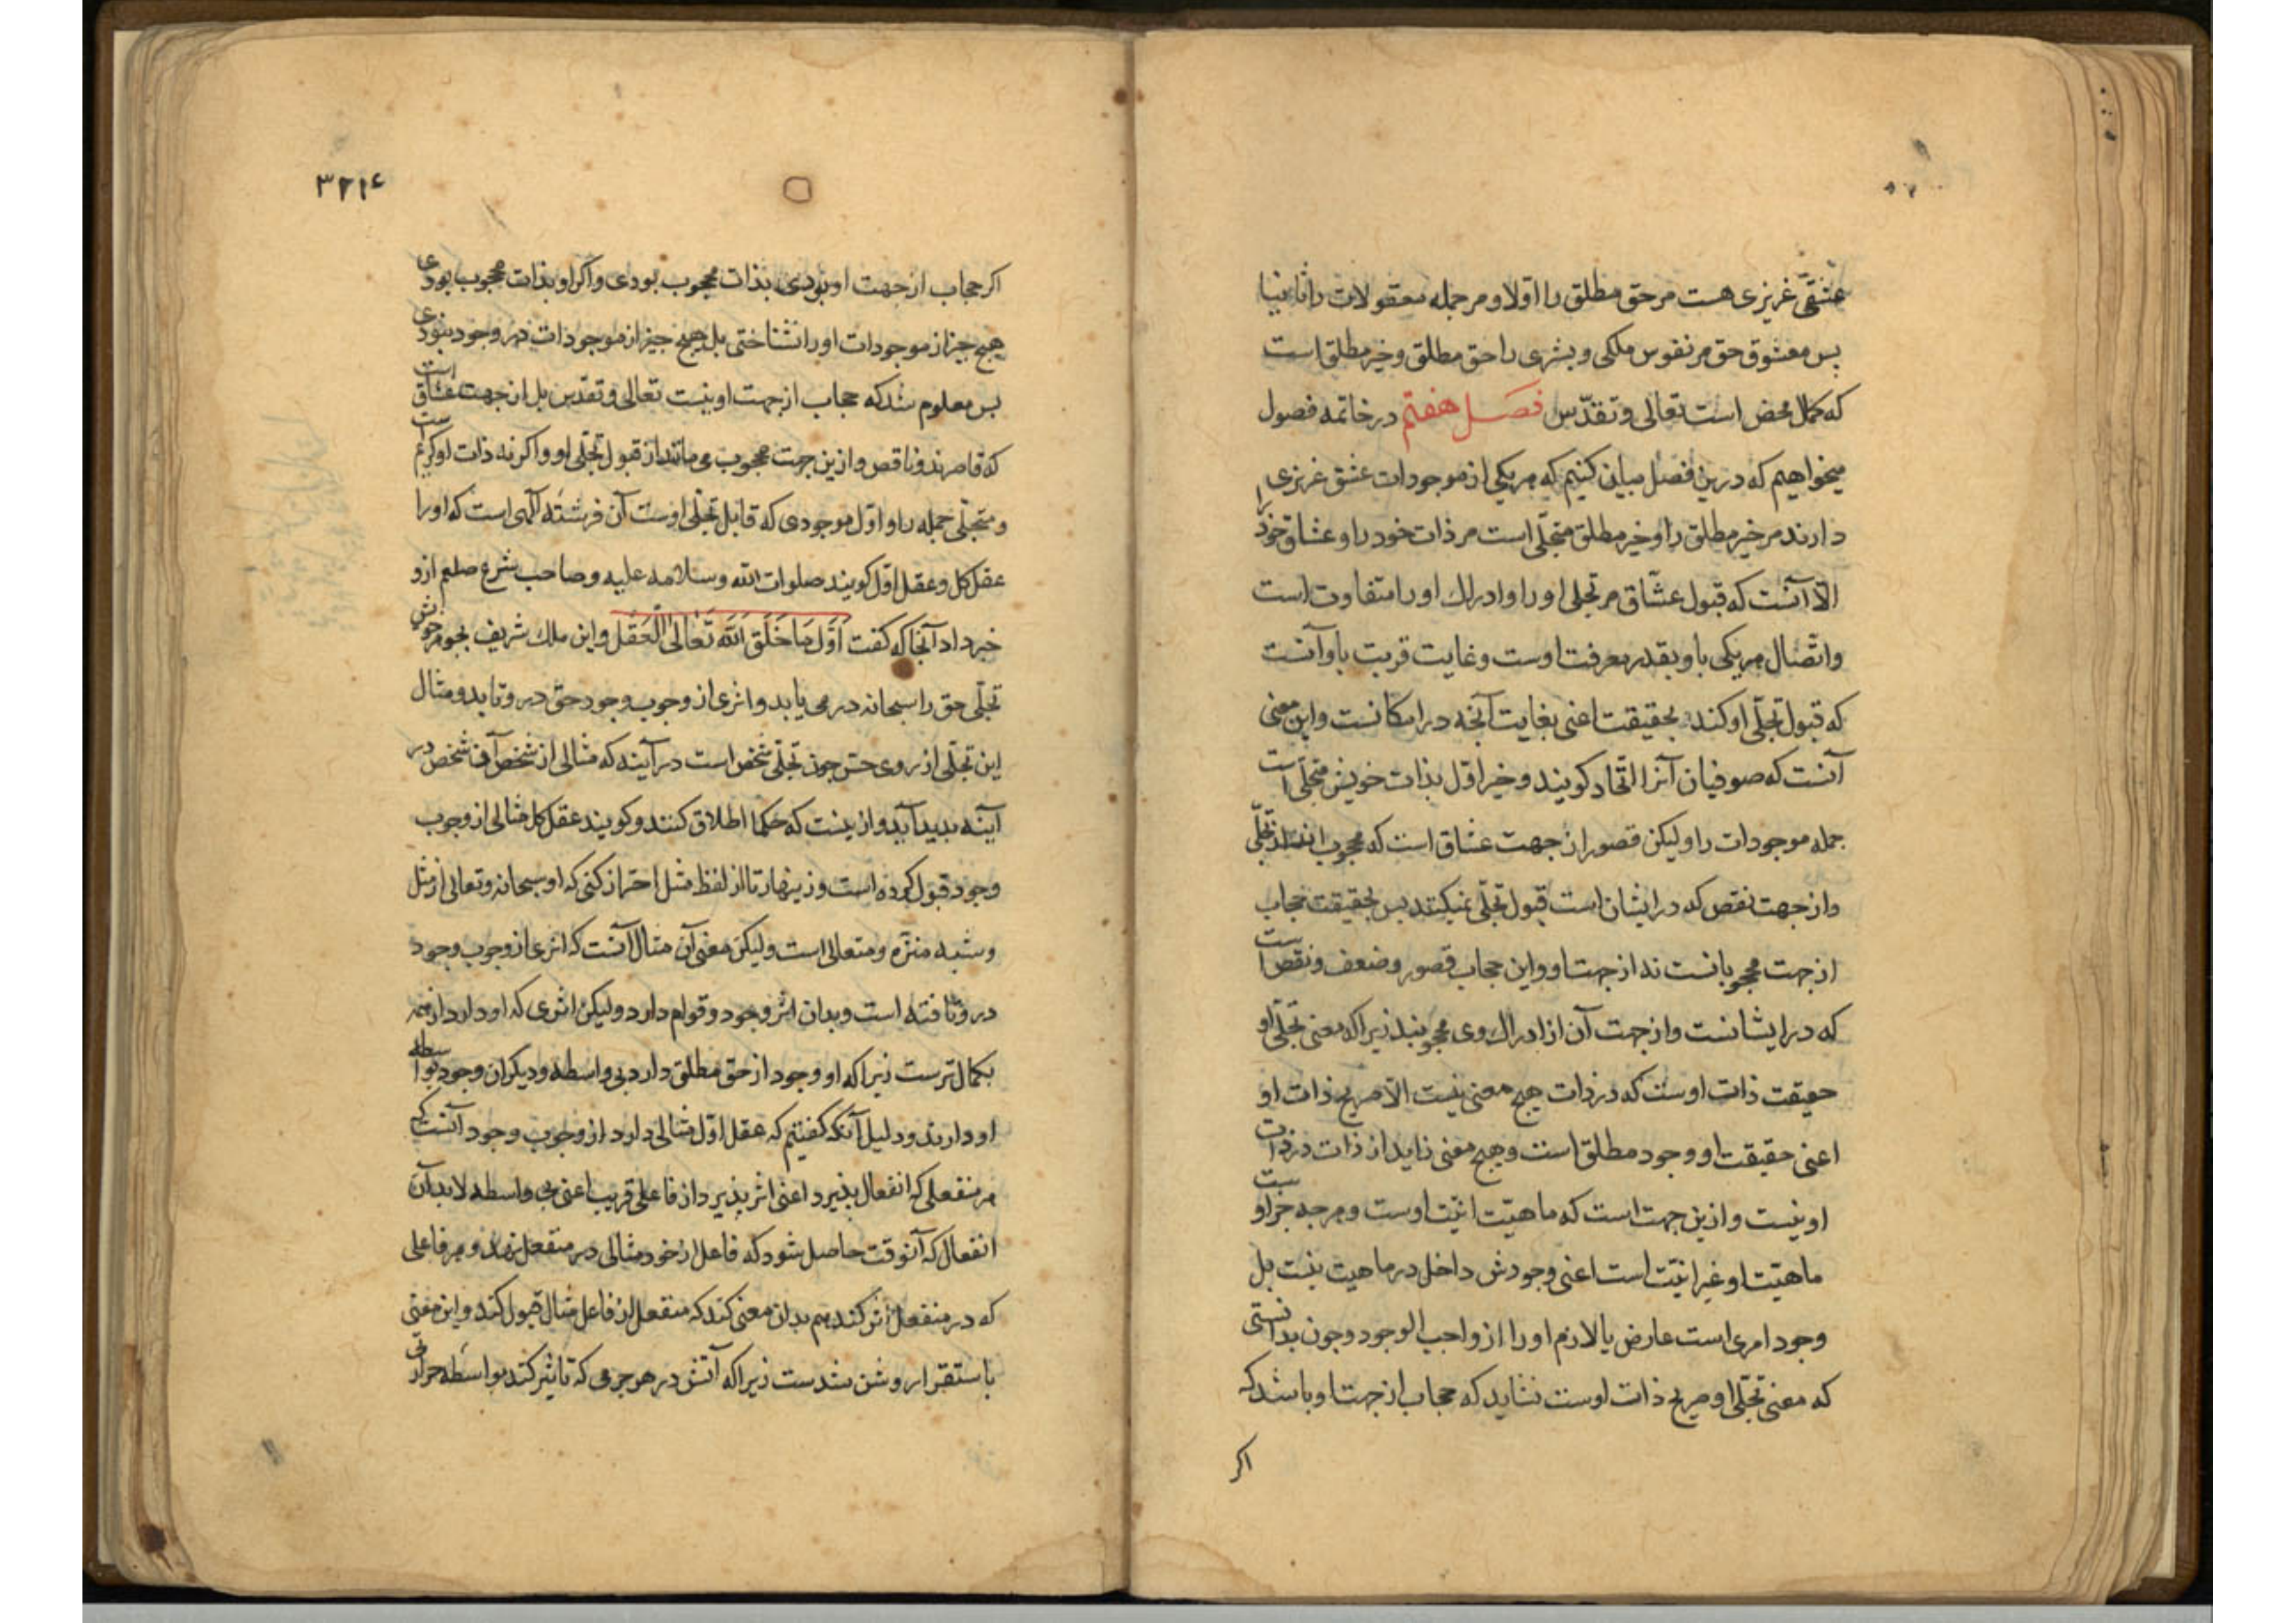 عشقی غریزی هست مر حق مطلق را اولا و مر جمله معقولات را ثانیا
بس معشوق حق مر نفوس ملکی و بشری را حق مطلق و خیر مطلق است
که کمال محض است تعالی و تقدّس فصل هفتم در خاتمه فصول
میخواهیم که درین فصل بیان کنیم که هر یکی از موجودات عشق غریزی
دارند مر خیر مطلق را و خیر مطلق متجلّی است مر ذات خود را و عشاق خود را
الّا آنست که قبول عشّاق مر تجلی او را و ادراک او را متفاوت است
و اتّصال هر یکی باو بقدر معرفت اوست و غایت قربت باو آنست
که قبول تجلّی او کند بحقیقت اعنی بغایت آنچه در امکانست و این معنی
آنست که صوفیان آنرا اتّحاد کویند و خیر اوّل بذات خویش متجلّی است
جمله موجودات را و لیکن قصور از جهت عشاق است که محجوب اند از تجلّی
و از جهت نقص که در ایشان است قبول تجلّی نمیکنند بس بحقیقت حجاب
از جهت محجوبانست نه از جهت او و این حجاب قصور و ضعف و نقص است
که در ایشانست و از جهت آن از ادراک وی محجوبند زیرا که معنی تجلّی او
حقیقت ذات اوست که در ذات هیچ معنی نیست الّا صریح ذات او
اعنی حقیقت او وجود مطلق است و هیچ معنی زاید از ذات در ذات
او نیست و ازین جهت است که ماهیّت انیّت اوست و هرچه جز اوست
ماهیّت او غیر انیّت است اعنی وجودش داخل در ماهیت نیست بل
وجود امری است عارض یا لازم او را از واجب الوجود و چون بدانستی
که معنی تجلّی او صریح ذات اوست نشاید که حجاب از جهت او باشد که
اکر
۳۲۱۴
اکر حجاب از جهت او بودی بذات محجوب بودی و اکر او بذات محجوب بودی
هیچ جیز از موجودات او را نشناختی بل هیچ جیز از موجودات در وجود نبودی
بس معلوم شد که حجاب از جهت او نیست تعالی و تقدّس بل از جهت عشاق است
که قاصرند و ناقص و ازین جهت محجوب می مانند از قبول تجلّی او و اکرنه ذات او کریم است
و متجلّی جمله را و اوّل موجودی که قابل تجلّی اوست آن فرشتهٔ الٓهی است که او را
عقل کل و عقل اوّل کویند صلوات الله و سلامه علیه و صاحب شرع صلعم ازو
خبر داد آنجا که کفت اَوَّل مَا خَلَق اللَّه تَعَالی الْعَقْل و این ملک شریف بجوهر خویش
تجلّی حق را سبحانه در می یابد و اثری از وجوب وجود حق درو تابد و مثال
این تجلّی از روی حسّ جون تجلّی شخص است در آینه که مثالی از شخص آن شخص در
آینه بدید آید و ازینست که حکما اطلاق کنند و کویند عقل کل مثالی از وجوب
وجود قبول کرده است و زینهار تا از لفظ مثل احتراز کنی که او سبحانه و تعالی از مثل
و شبه منزّه و متعالی است و لیکن معنی آن مثال آنست که اثری از وجوب وجود
درو تافته است و بدان اثر وجود و قوام دارد و لیکن اثری که او دارد از همه
بکمال ترست زیرا که او وجود از حق مطلق دارد بی واسطه و دیکران وجود بواسطه
او دارند و دلیل آنکه کفتیم که عقل اوّل مثالی دارد از وجوب وجود آنست که
هر منفعلی که انفعال بذیرد اعنی اثر بذیرد از فاعلی قریب اعنی بی واسطه لابد آن
انفعال که آنوقت حاصل شود که فاعل از خود مثالی در منفعل نهد و هر فاعلی
که در منفعل اثر کند هم بدان معنی کند که منفعل از فاعل مثال قبول کند و این معنی
باستقرا روشن شدست زیرا که آتش در هر جرمی که تاثیر کند بواسطه حرارتی